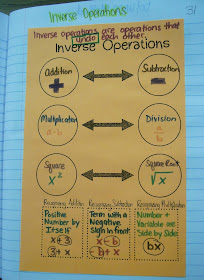 Inverse Operations
31
Inverse operations are operations that
undo each other.
Inverse Operations
Addition
Subtraction
Multiplication
a·b
Division
a
b
Square
x²
Square Root
√x
Recognizing Addition
Recognizing Subtraction
Recognizing Multiplication
Positive
Number by
Itself
x+3
3+x
Term with a
Negative
Sign in front
x-b
-b+x
Number +
Variable are
Side by Side
bx